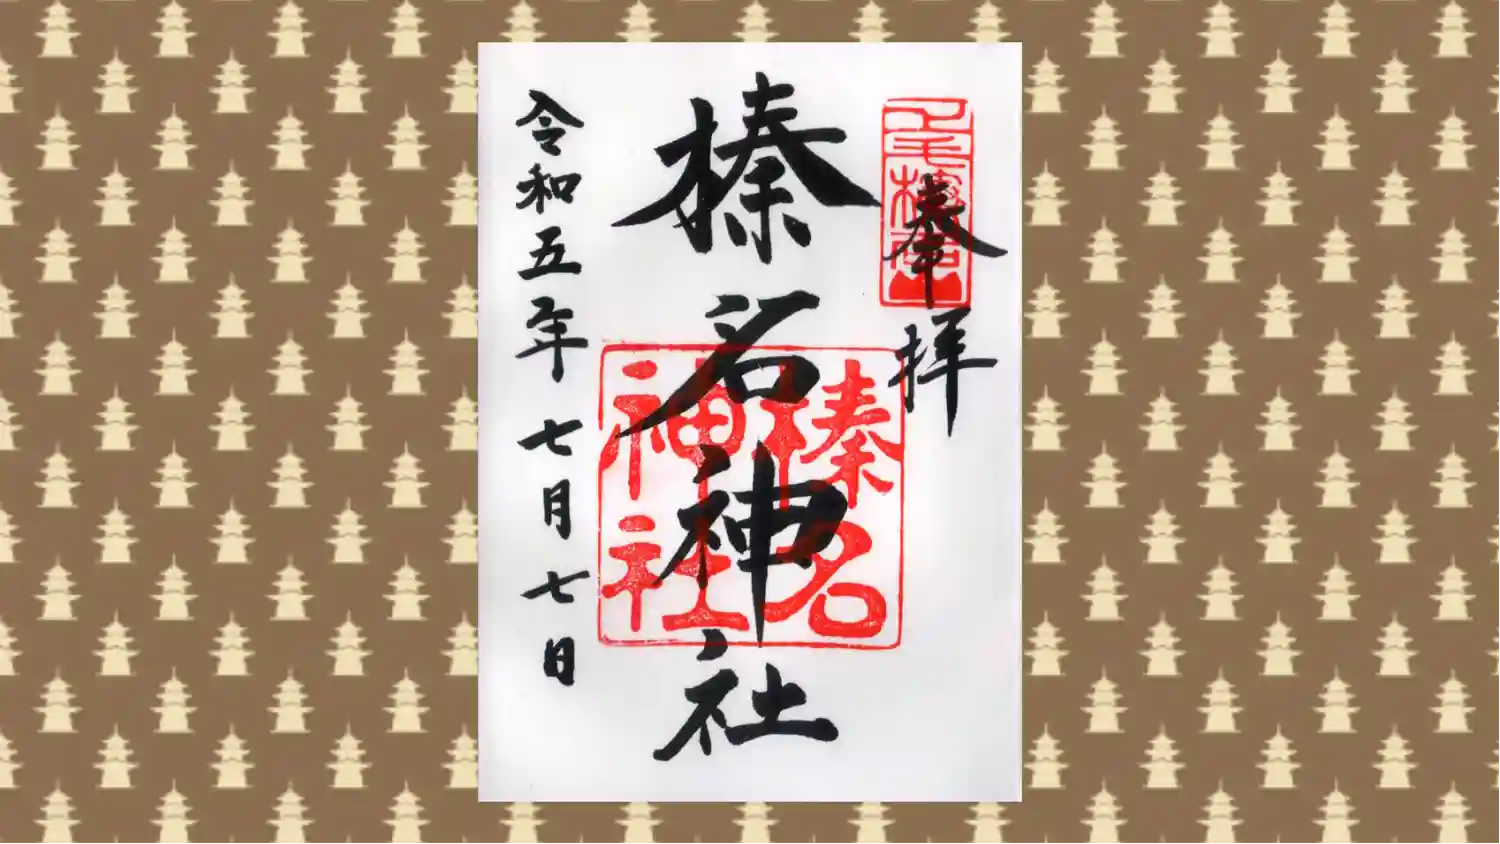 奉拝
榛名神社
榛名
神社
令和五年七月七日